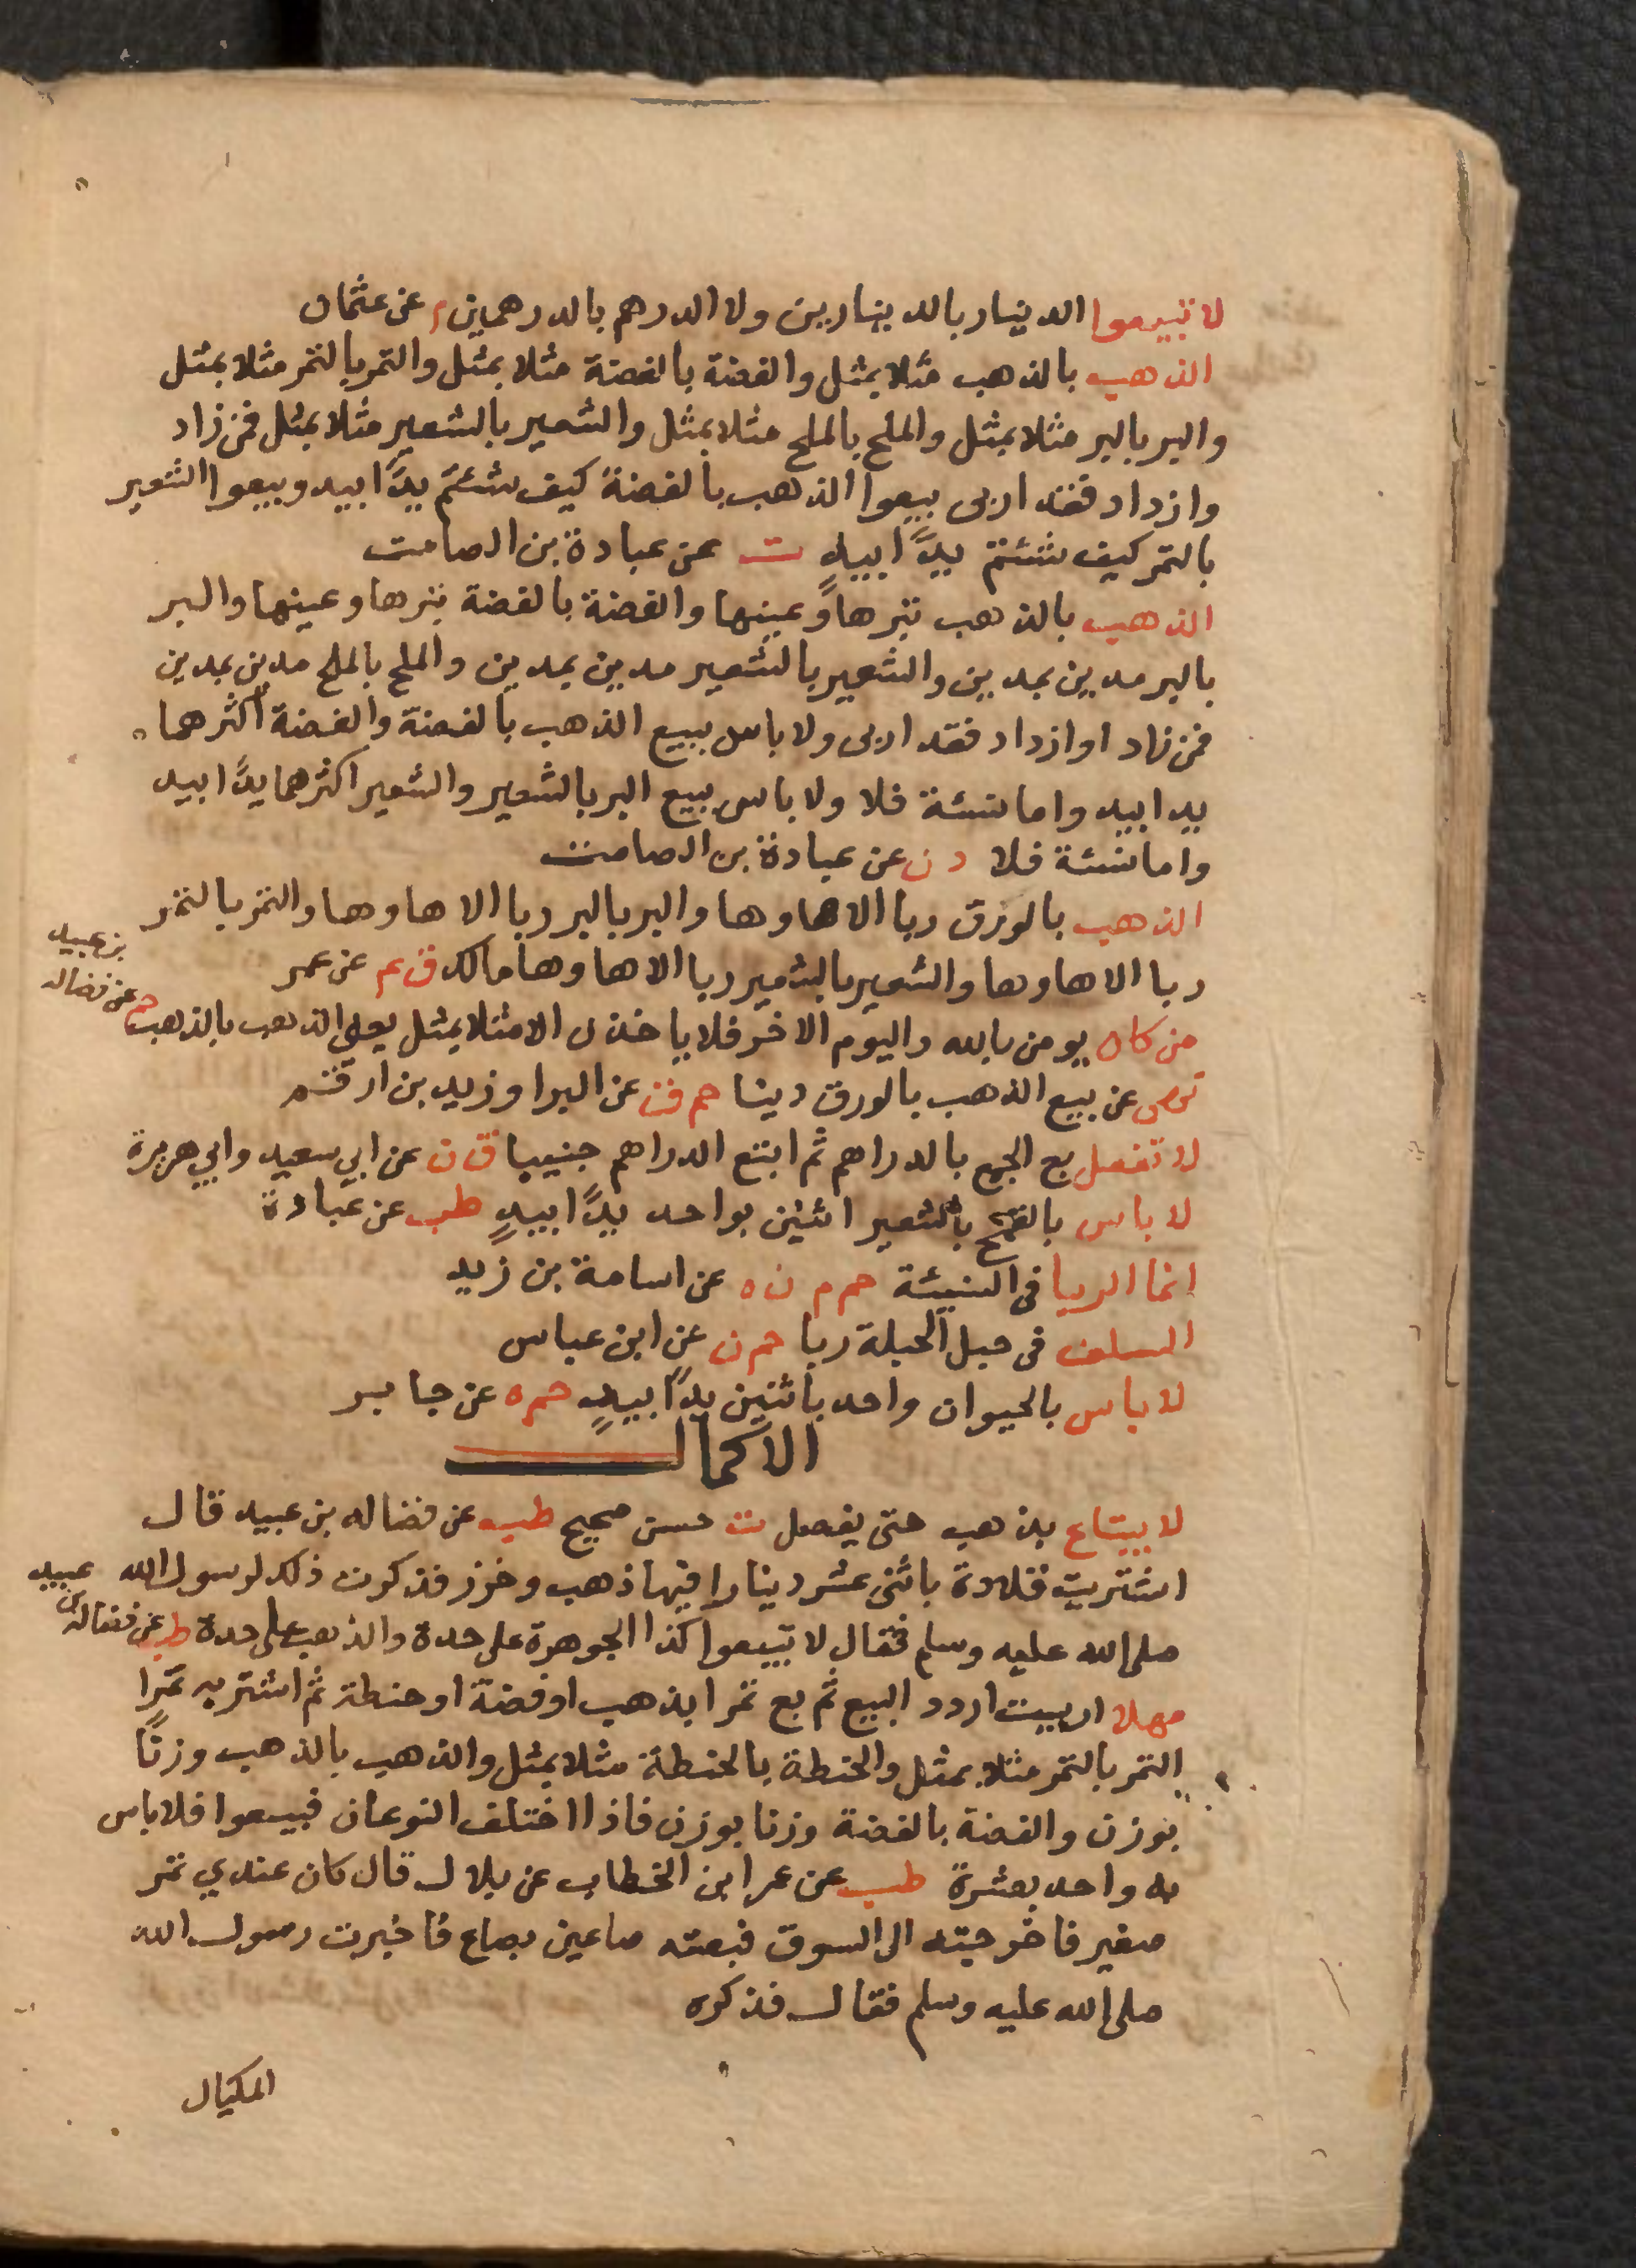 لا تبيعوا الدينار بالدينارين ولا الدرهم بالدرهمين م عن عثمان
الذهب بالذهب مثلا بمثل والفضة بالفضة مثلا بمثل والتمر بالتمر مثلا بمثل
والبر بالبر مثلا بمثل والملح بالملح مثلا بمثل والشعير بالشعير مثلا بمثل فمن زاد
وازداد فقد اربى بيعوا الذهب بالفضة كيف شئتم يدًا بيد وبيعوا الشعير
بالتمر كيف شئتم يدًا بيدٍ ت عن عبادة بن الصامت
الذهب بالذهب تبرها وعينها والفضة بالفضة تبرها وعينها والبر
بالبر مدين بمدين والشعير بالشعير مدين بمدين والملح بالملح مدين بمدين
فمن زاد او ازداد فقد اربى ولا باس ببيع الذهب بالفضة والفضة اكثرهما
يدا بيد واما نسئة فلا ولا باس ببيع البر بالشعير والشعير اكثرهما يدًا بيد
واما نسئة فلا د ن عن عبادة بن الصامت
الذهب بالورق ربا الا ها وها والبر بالبر ربا الا ها وها والتمر بالتمر
ربا الا ها وها والشعير بالشعير ربا الا ها وها مالك ق ع عن عمر
من كان يومن بالله واليوم الاخر فلا ياخذن الا مثلا بمثل يعني الذهب بالذهب م عن فضاله
بن عبيد
نهى عن بيع الذهب بالورق دينا حم ق ن عن البرا وزيد بن ارقم
لا تفعل بع الجمع بالدراهم ثم ابتع الدراهم جنيبا ق ن عن ابي سعيد وابي هريرة
لا باس بالقمح بالشعير اثنين بواحد يدًا بيدٍ طب عن عبادة
انما الربا في النسيئة حم م ن ه عن اسامة بن زيد
السلف في حبل الحبلة ربا حم ن عن ابن عباس
لا باس بالحيوان واحد باثنين يدًا بيدٍ حم ه عن جابر
الاكمال
لا يبتاع بذهب حتى يفصل ت حسن صحيح طب عن فضاله بن عبيد قال
اشتريت قلادة باثنى عشر دينارا فيها ذهب وخرز فذكرت ذلك لرسول الله
صلى الله عليه وسلم فقال لا تبيعوا كذا الجوهرة على حدة والذهب على حدة طب عن فضالة بن
عبيد
مهلا اربيت اردد البيع ثم بع تمرا بذهب او فضة او حنطة ثم اشتر به تمرًا
التمر بالتمر مثلا بمثل والحنطة بالحنطة مثلا بمثل والذهب بالذهب وزنًا
بوزن والفضة بالفضة وزنا بوزن فاذا اختلف النوعان فبيعوا فلا باس
به واحد بعشرة طب عن عمر ابن الخطاب عن بلال قال كان عندي تمر
صغير فاخرجته الى السوق فبعته صاعين بصاع فاخبرت رسول الله
صلى الله عليه وسلم فقال فذكره
المكيال